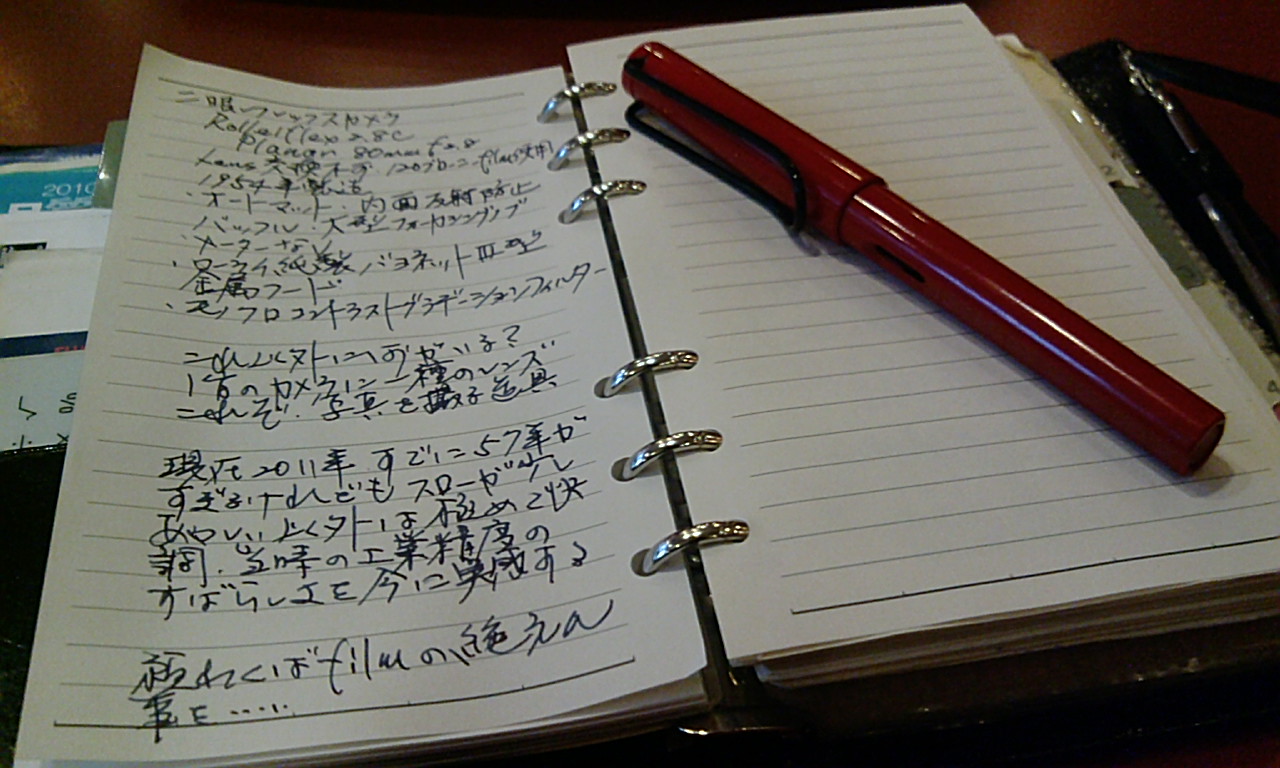 二眼レフレックスカメラ
Rolleiflex 2.8C
Planar 80mm f2.8
Lens交換不可 120ブローニーfilm使用
1954年製造
・オートマット・内面反射防止
バッフル・大型フォーカシングノブ
・メーターなし
・ローライ純製バヨネットIII型
金属フード
・モノクロコントラストグラデーションフィルター
これ以外になにがいる?
1台のカメラに一種のレンズ
これぞ、写真を撮る道具
現在2011年 すでに57年が
すぎるけれどもスローが少し
あやしい以外は極めて快
調、当時の工業精度の
すばらしさを今に実感する
願わくばfilmの絶えん
事を・・・・・
2010